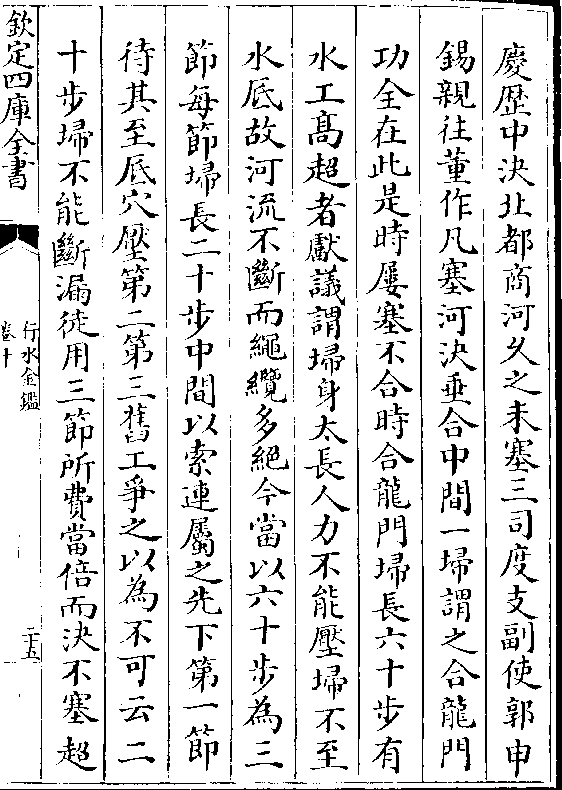 慶歴中決北都商河久之未塞三司度支副使郭申
錫親往董作凡塞河決垂合中間一埽謂之合龍門
功全在此是時屢塞不合時合龍門埽長六十步有
水工髙超者獻議謂埽身太長人力不能壓埽不至
水厎故河流不斷而繩纜多絶今當以六十步為三
節每節埽長二十步中間以索連屬之先下第一節
待其至厎穴壓第二第三舊工爭之以為不可云二
十步埽不能斷漏徒用三節所費當倍而決不塞超
欽定四庫全書
行水金鑑
卷十
二十五